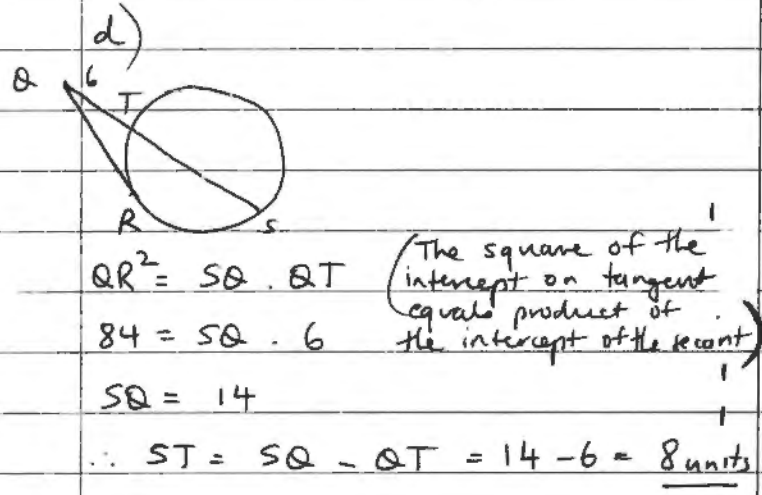 d)
Q 6 T
R S
QR² = SQ . QT (The square of the 1
intercept on tangent
equals product of
the intercept of the secant)
84 = SQ . 6
SQ = 14 1
∴ ST = SQ - QT = 14 - 6 = 8 units 1